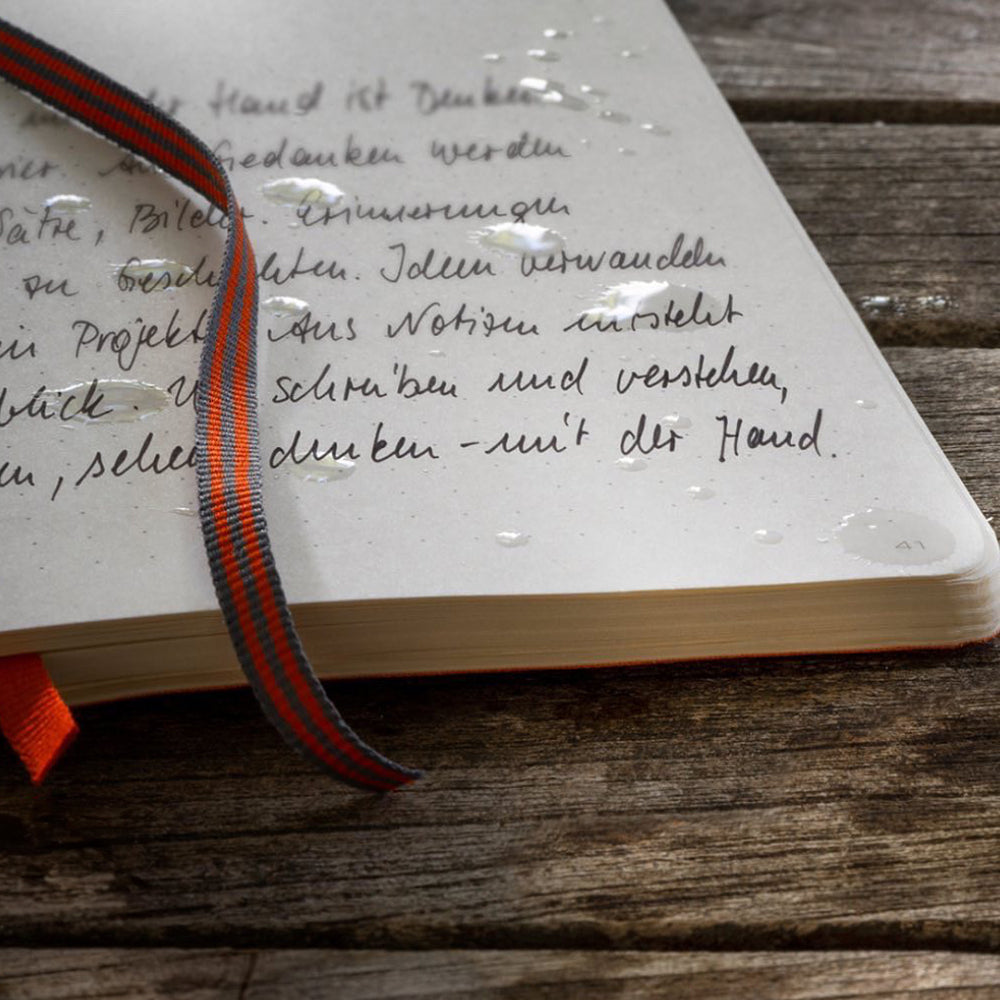 der Hand ist Denken
Gedanken werden
Sätze, Bilder. Erinnerungen
zu Geschichten. Ideen verwandeln
in Projekt Aus Notizen entsteht
blick. schreiben und verstehen,
en, sehen denken - mit der Hand.
41